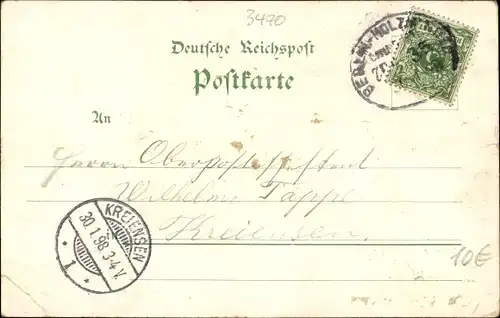 3470
Deutsche Reichspost
Postkarte
BERLIN-HOLZMINDEN
An
Herrn Oberpostassistent
Wilhelm Tappe
Kreiensen.
KREIENSEN
30.1.98.3-4V.
* 1 *
10€